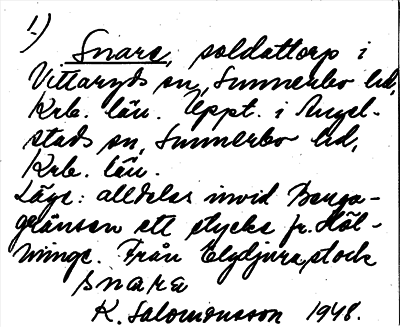 1.)
Snare, soldattorp i
Vittaryds sn, Sunnerbo hd,
Krb. län. Uppt. i Angel-
stads sn, Sunnerbo hd,
Krb. län.
Läge: alldeles invid Berga-
gränsen ett stycke fr. Höl-
minge. Från
snare
K. Salomonsson 1948.